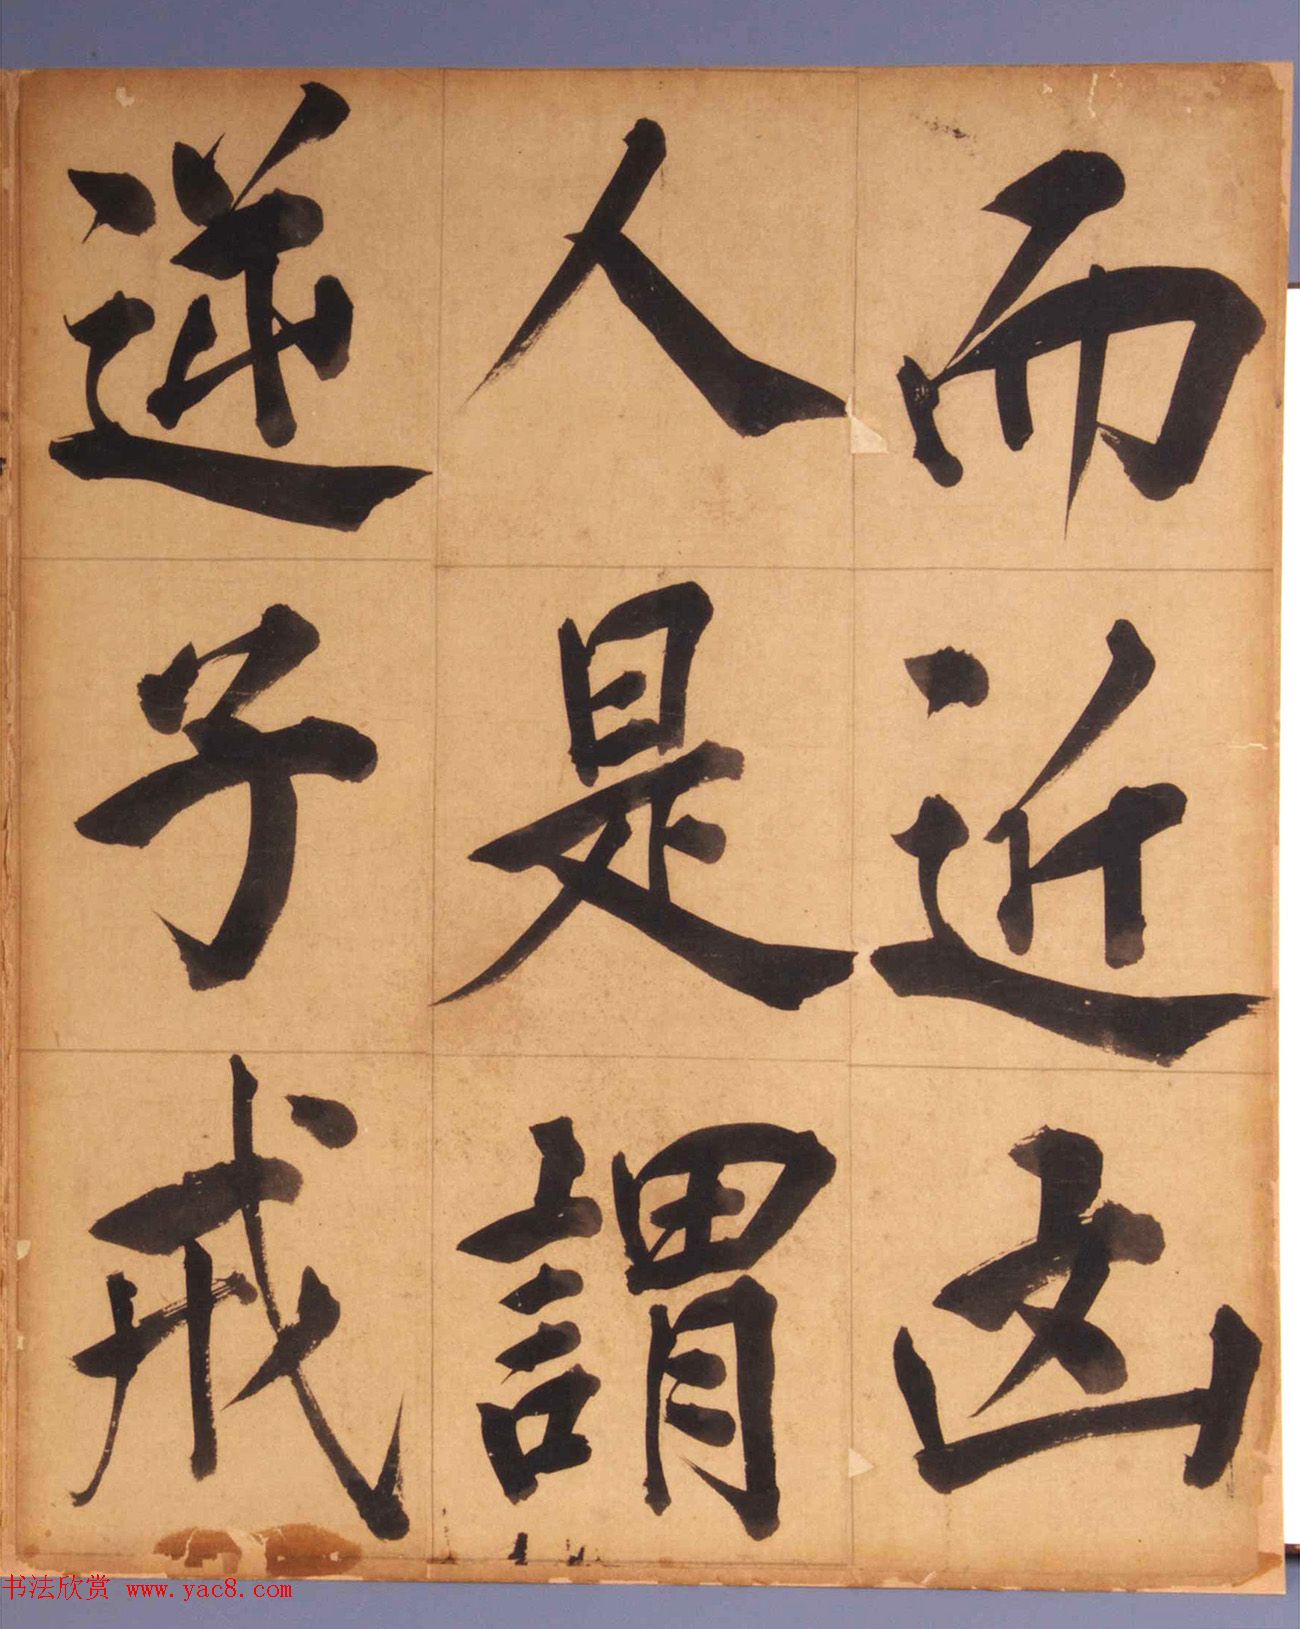 而近凶
人是謂
逆子戒
书法欣赏 www.yac8.com